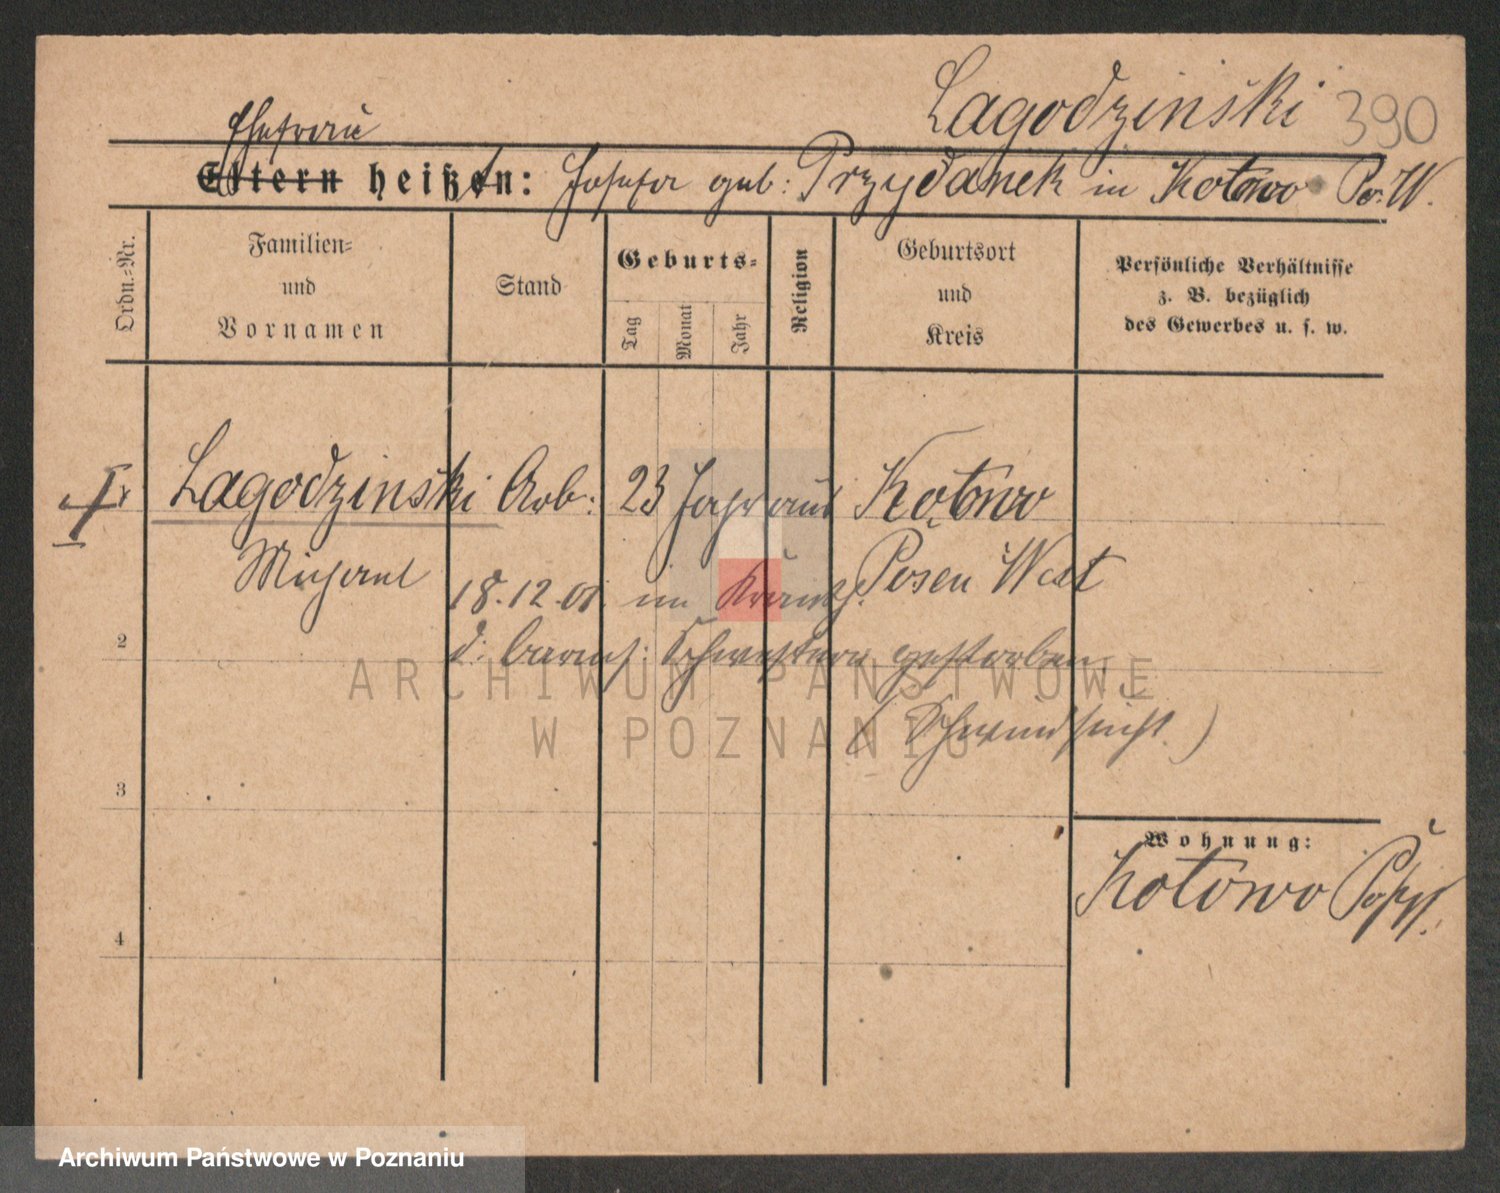 Lagodzinski 390
Ehefrau
Eltern heißen: Josefa geb: Przydanek in Kotowo Po. W.
Ordn.=Nr.
Familien=
und
Vornamen
Stand
Geburts=
Tag
Monat
Jahr
Religion
Geburtsort
und
Kreis
Persönliche Verhältnisse
z. B. bezüglich
des Gewerbes u. s. w.
Lagodzinski Arb: 23 Jahr aus Kotowo
Michael Posen West
18.12.01. im Krankh.
d. barmh: Schwestern gestorben
(Schwindsucht.)
2
3
4
Wohnung:
Kotowo
ARCHIWUM PAŃSTWOWE
W POZNANIU
Archiwum Państwowe w Poznaniu